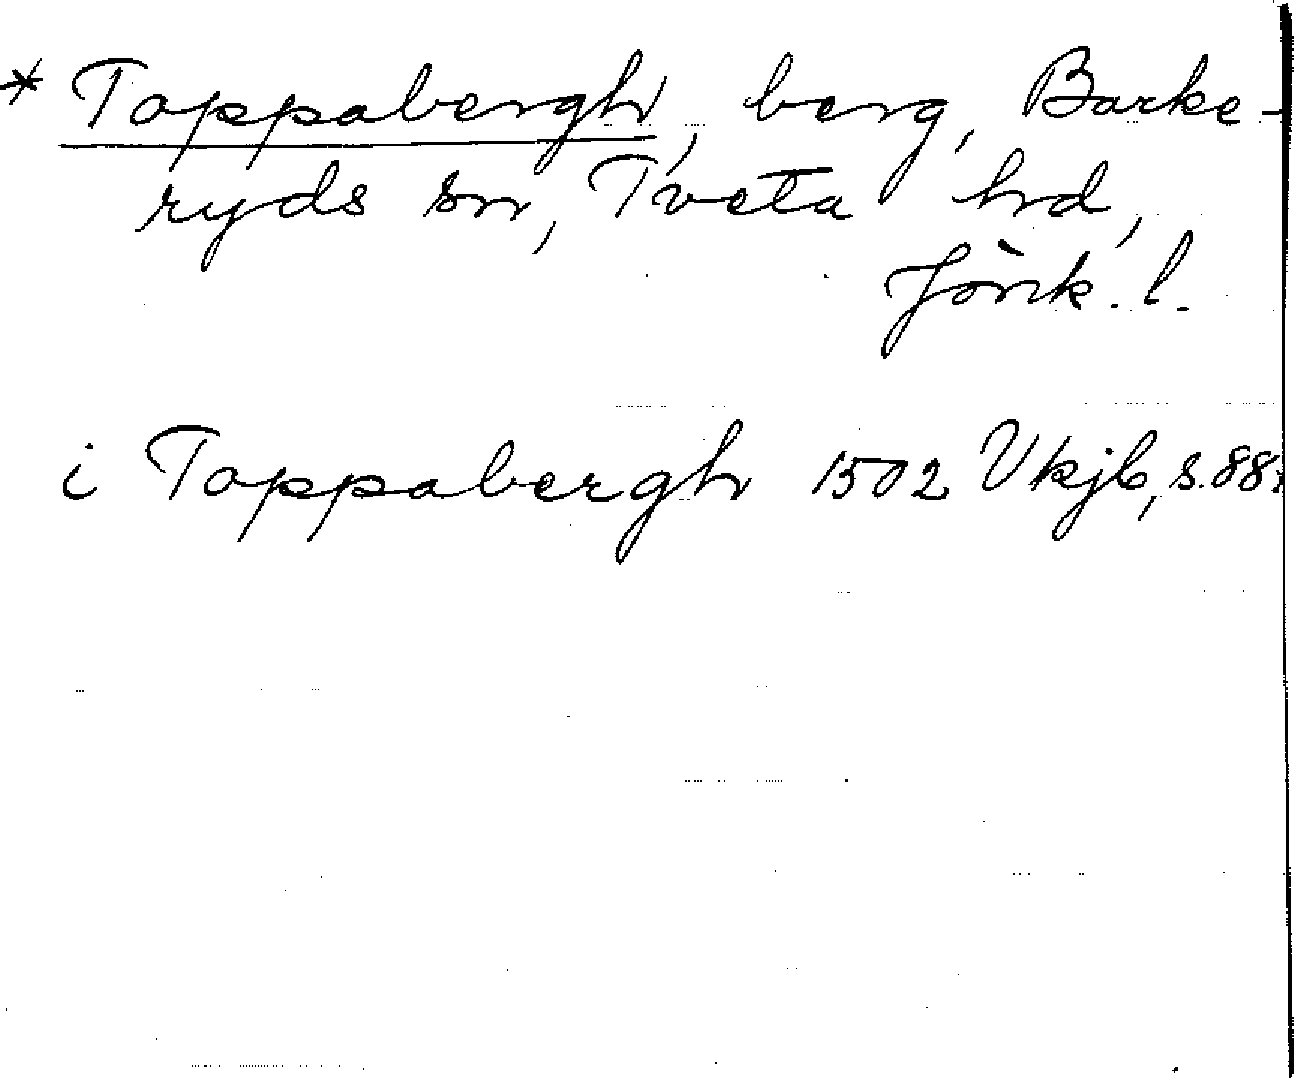 * Toppabergh, berg, Barke-
ryds sn, Tveta hd,
Jönk. l.
i Toppabergh 1502 Vkjb, s. 88